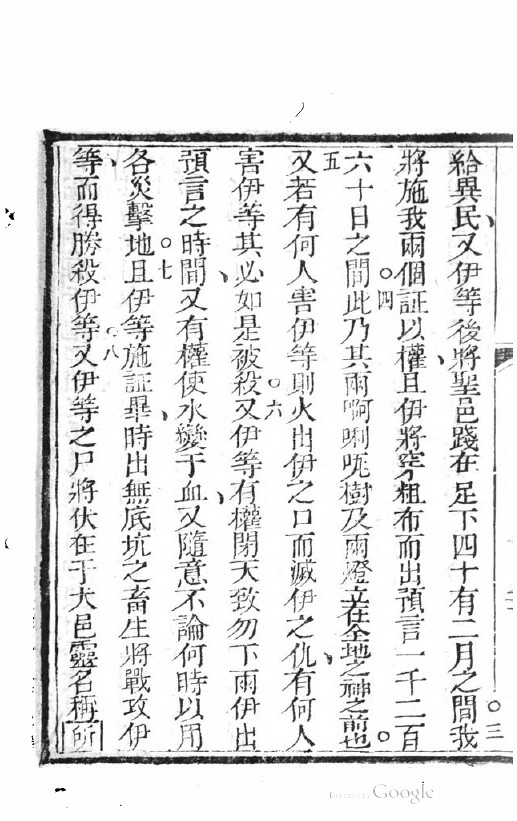 給異民又伊等後將聖邑踐在足下四十有二月之間我
三
將施我兩個証以權且伊將穿粗布而出預言一千二百
四
六十日之間此乃其兩啊唎㖇樹及兩燈立在全地之神之前也
五
又若有何人害伊等則火出伊之口而滅伊之仇有何人
六
害伊等其必如是被殺又伊等有權閉天致勿下雨伊出
預言之時間又有權使水變于血又隨意不論何時以用
七
各災擊地且伊等施証畢時出無底坑之畜生將戰攻伊
八
等而得勝殺伊等又伊等之尸將伏在于大邑靈名稱所
Digitized by Google